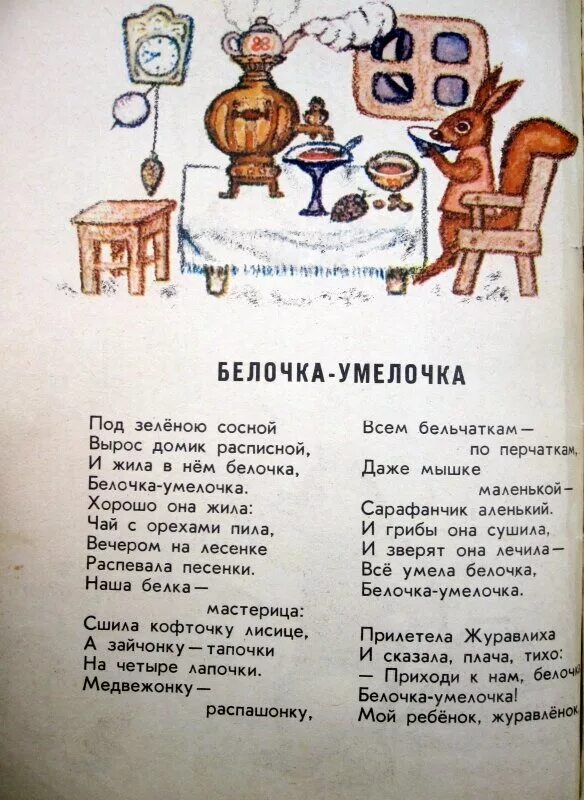 БЕЛОЧКА-УМЕЛОЧКА
Под зелёною сосной
Вырос домик расписной,
И жила в нём белочка,
Белочка-умелочка.
Хорошо она жила:
Чай с орехами пила,
Вечером на лесенке
Распевала песенки.
Наша белка—
мастерица:
Сшила кофточку лисице,
А зайчонку—тапочки
На четыре лапочки.
Медвежонку—
распашонку,
Всем бельчаткам—
по перчаткам,
Даже мышке
маленькой—
Сарафанчик аленький.
И грибы она сушила,
И зверят она лечила—
Всё умела белочка,
Белочка-умелочка.
Прилетела Журавлиха
И сказала, плача, тихо:
— Приходи к нам, белочка
Белочка-умелочка!
Мой ребёнок, журавлёнок